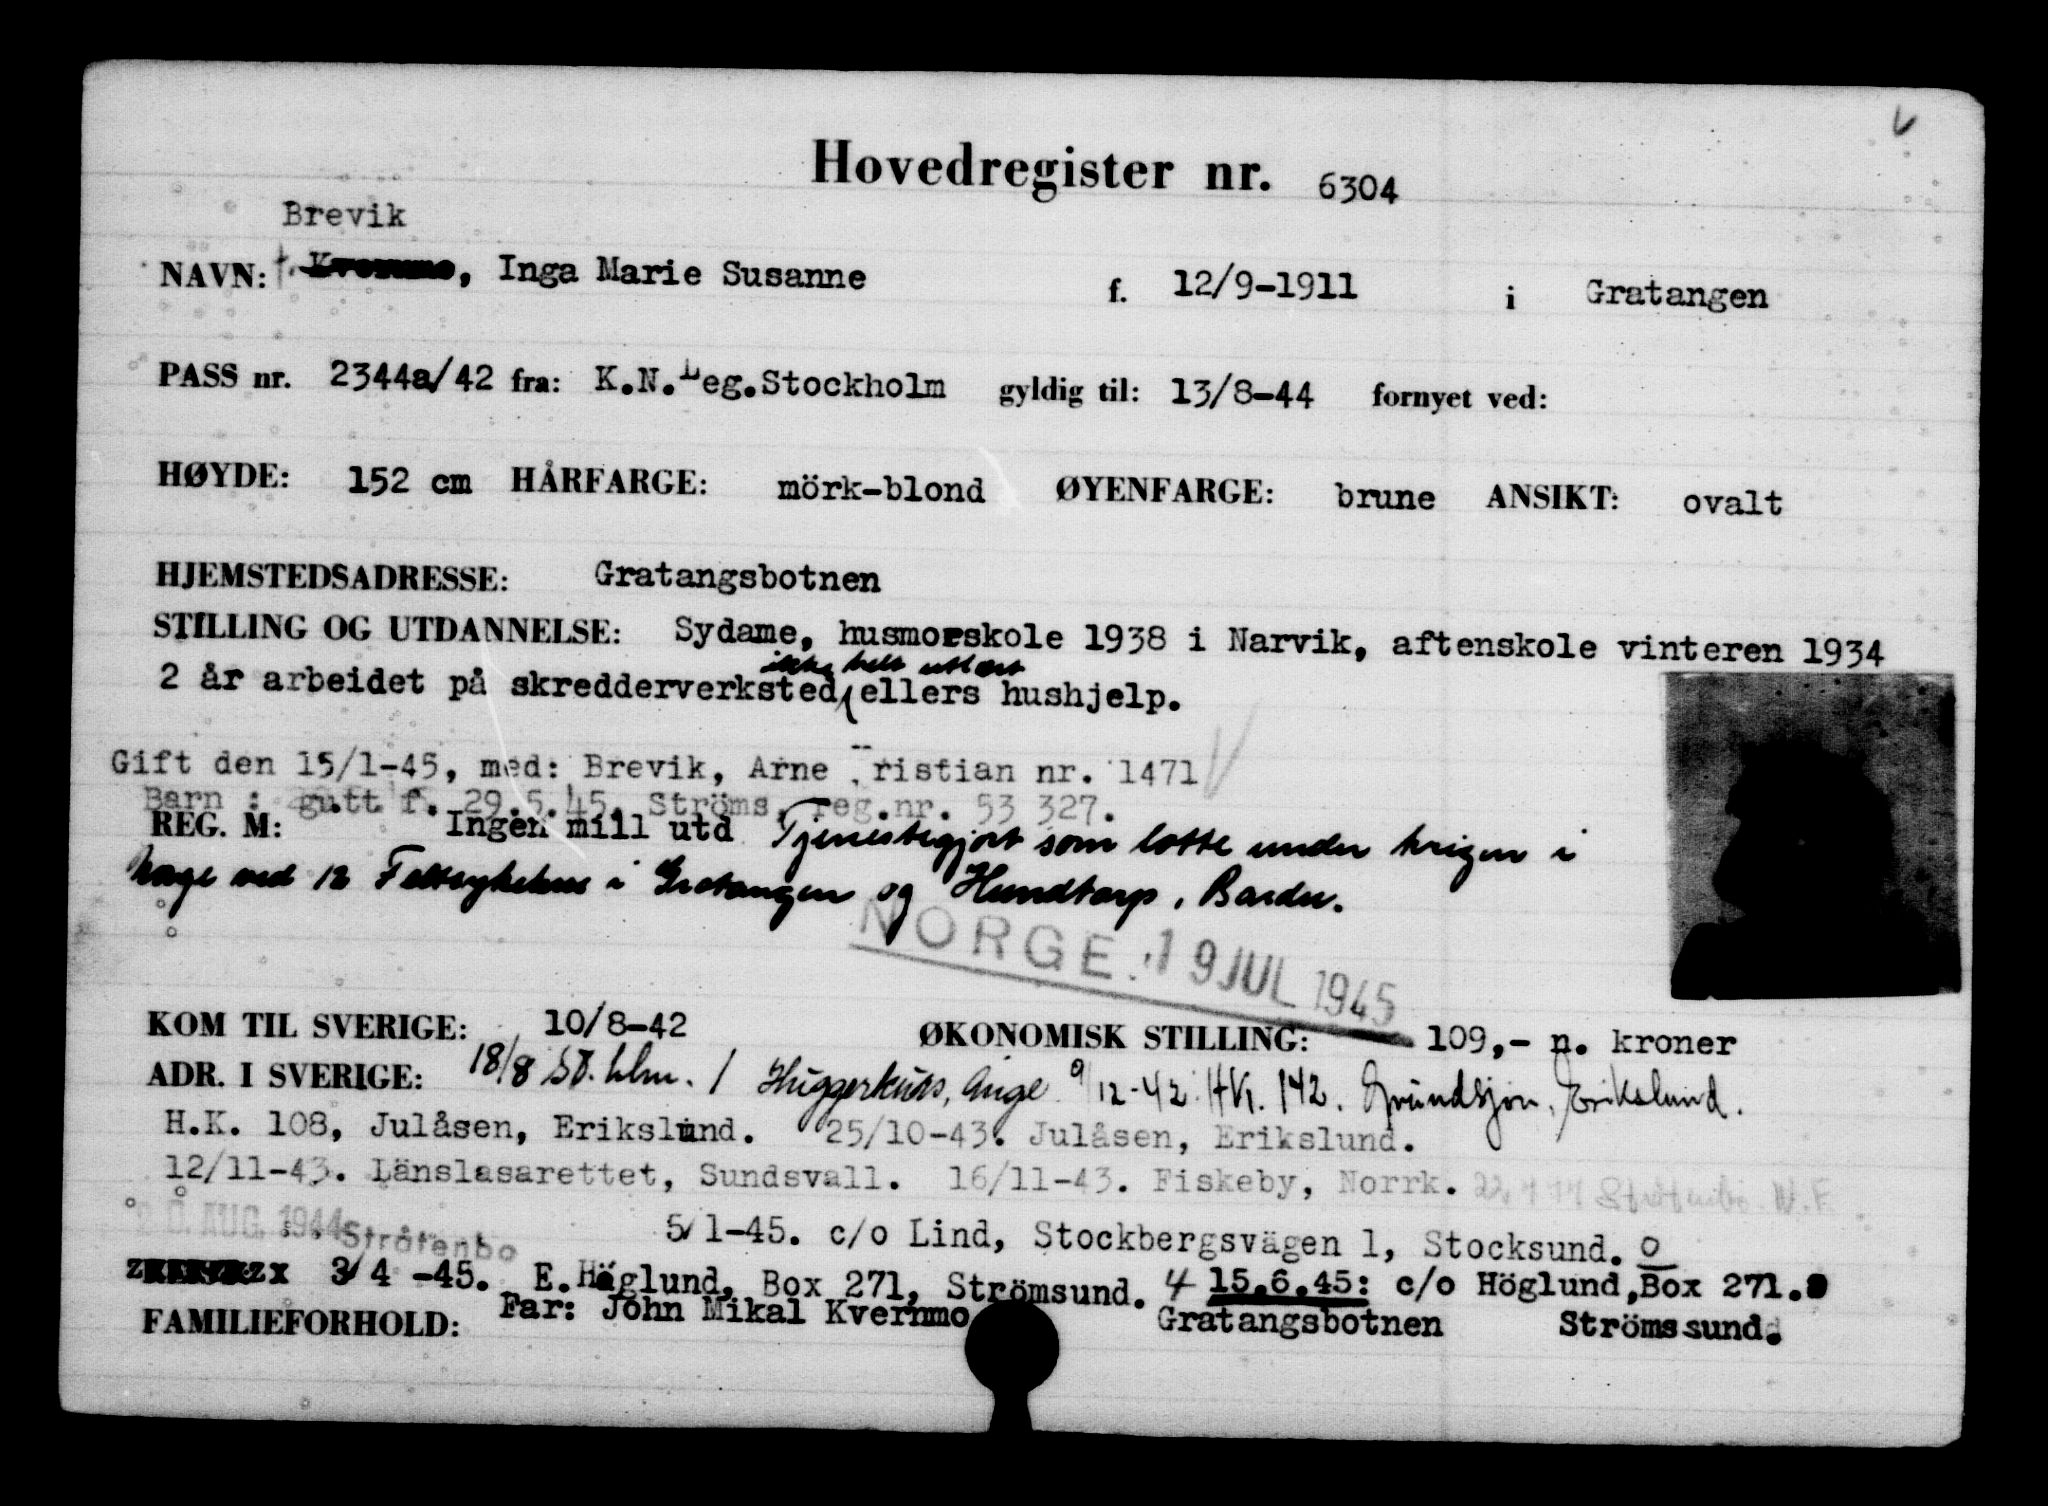 Hovedregister nr. 6304
Brevik
NAVN: Kvernmo, Inga Marie Susanne f. 12/9-1911 i Gratangen
PASS nr. 2344a/42 fra: K.N.Leg.Stockholm gyldig til: 13/8-44 fornyet ved:
HØYDE: 152 cm HÅRFARGE: mörk-blond ØYENFARGE: brune ANSIKT: ovalt
HJEMSTEDSADRESSE: Gratangsbotnen
STILLING OG UTDANNELSE: Sydame, husmorskole 1938 i Narvik, aftenskole vinteren 1934
ikke helt utlært
2 år arbeidet på skredderverksted, ellers hushjelp.
Gift den 15/1-45, med: Brevik, Arne ristian nr. 1471
Barn : gutt f. 29.5.45. Ströms, reg.nr. 53 327.
REG. M: Ingen mill utd Tjenestegjort som lotte under krigen i
Norge ved 12 Feltsykehus i Gratangen og Hundtorp, Bardu.
NORGE. 19 JUL 1945
KOM TIL SVERIGE: 10/8-42 ØKONOMISK STILLING: 109,- n. kroner
ADR. I SVERIGE: 18/8 St. hlm. / Huggerkurs, Ånge 9/12-42 HK. 142. Grundsjön, Erikslund.
H.K. 108, Julåsen, Erikslund. 25/10-43. Julåsen, Erikslund.
12/11-43. Länslasarettet, Sundsvall. 16/11-43. Fiskeby, Norrk.
AUG. 1944 Stråtenbo 5/1-45. c/o Lind, Stockbergsvägen 1, Stocksund.
3/4 -45. E.Höglund, Box 271, Strömsund. 15.6.45: c/o Höglund, Box 271.
FAMILIEFORHOLD: Far: John Mikal Kvernmo Gratangsbotnen Strömssund.